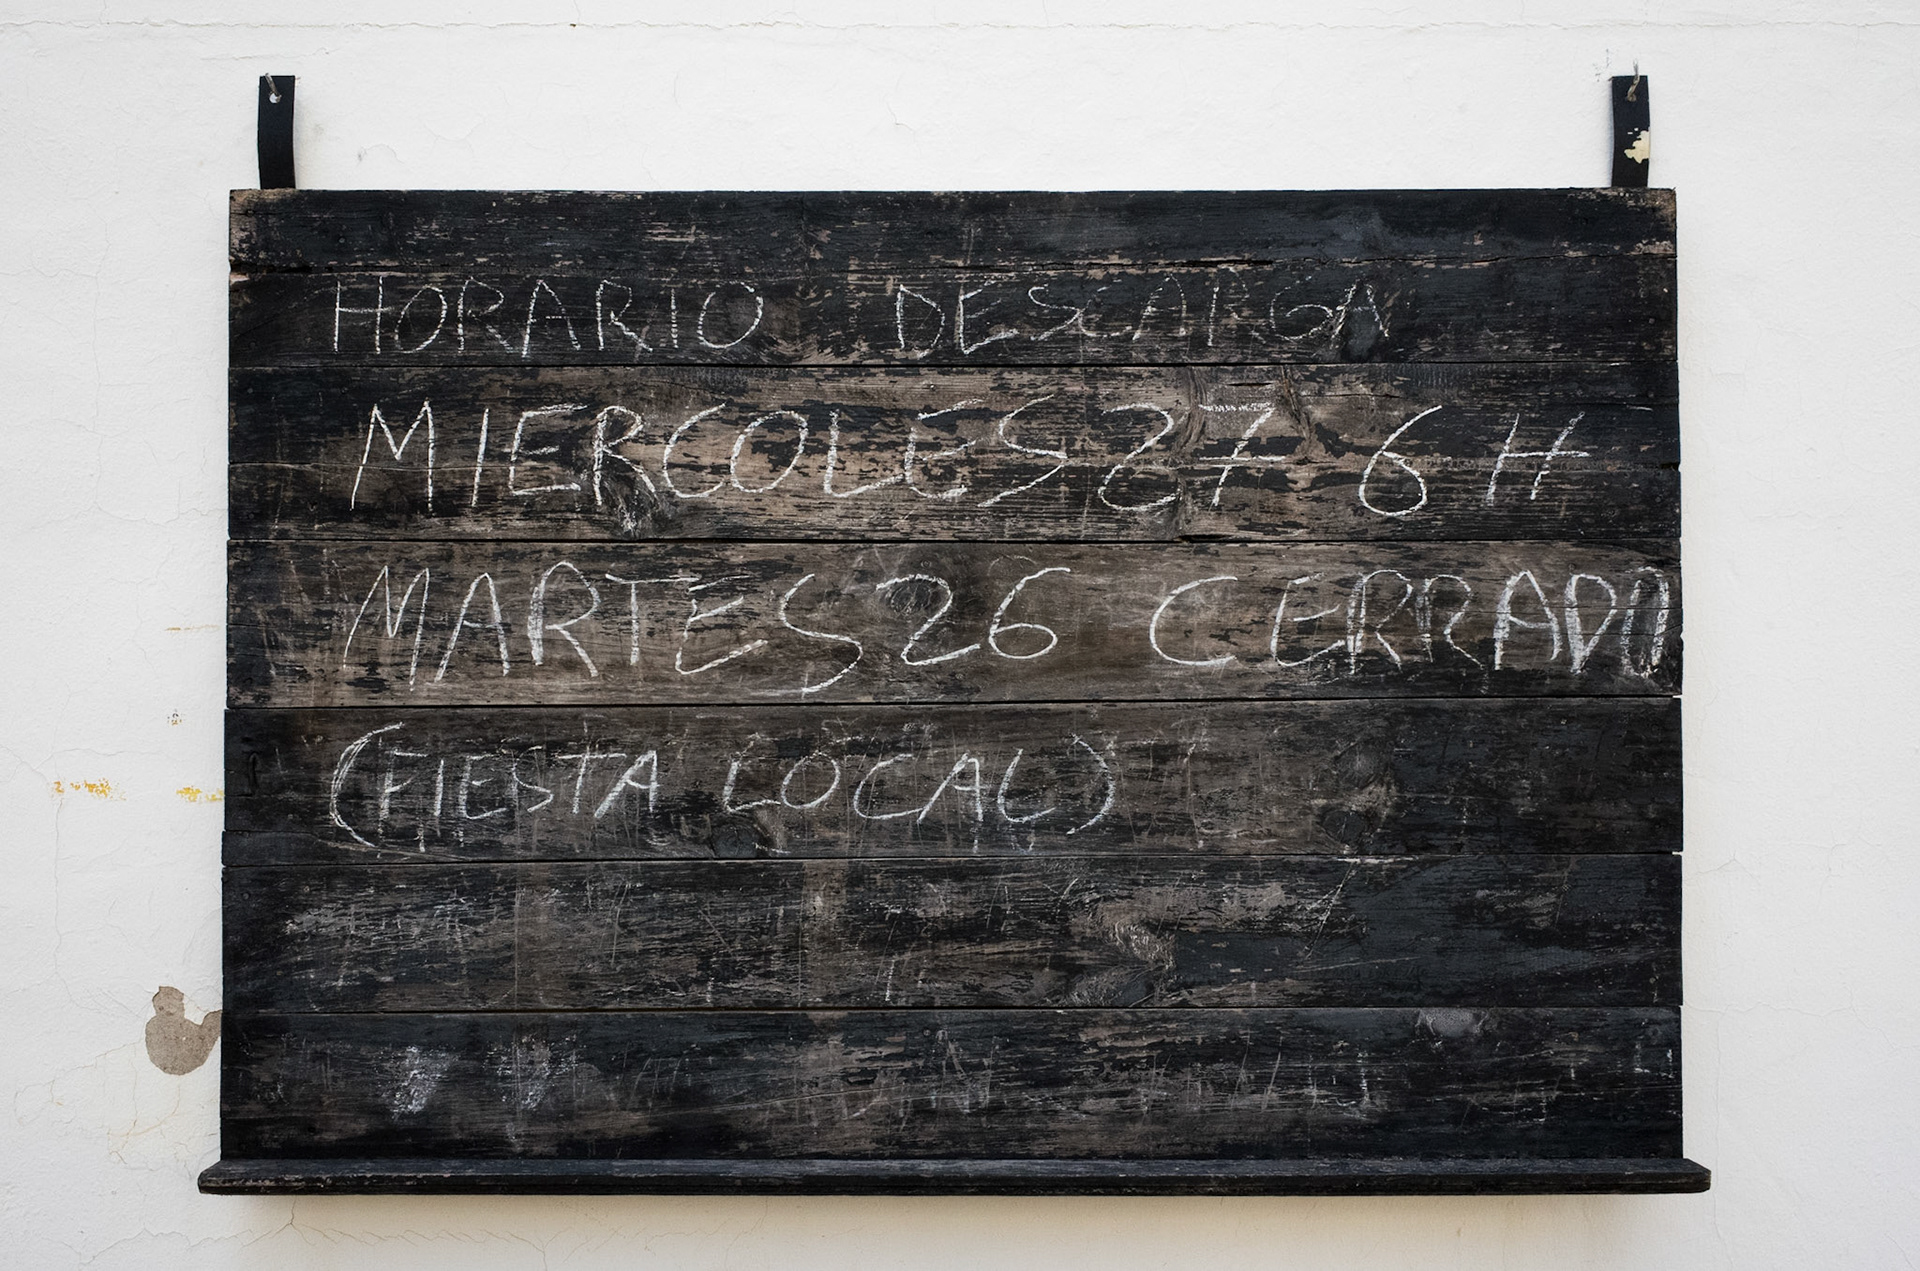 HORARIO DESCARGA
MIERCOLES 27 6 H
MARTES 26 CERRADO
(FIESTA LOCAL)